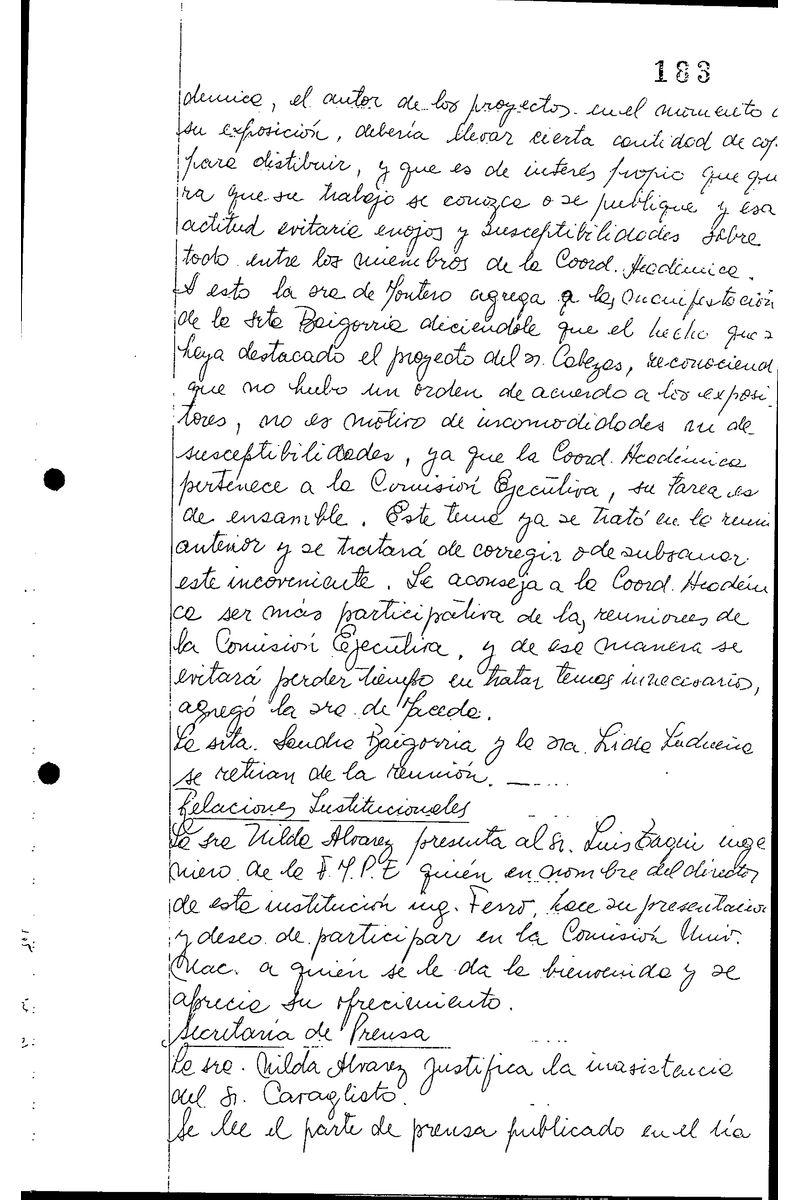 183
démica, el autor de los proyectos en el momento d
su exposición, debería llevar cierta cantidad de cop
para distibuir, y que es de interés propio que qu
ra que su trabajo se conozca o se publique y esa
actitud evitaría enojos y susceptibilidades sobre
todo entre los miembros de la Coord. Académica.
A esto la sra de Montero agrega a las manifestación
de la srta Baigorria diciendole que el hecho que s
haya destacado el proyecto del sr. Cabezas, reconociend
que no hubo un orden de acuerdo a los exposi-
tores, no es motivo de incomodidades ni de
susceptibilidades, ya que la Coord. Académica
pertenece a la Comisión Ejecutiva, su tarea es
de ensamble. Este tema ya se trató en la reuni
anterior y se tratará de corregir o de subsanar
este incoveniente. Se aconseja a la Coord. Académi
ca ser más participativa de las reuniones de
la Comisión Ejecutiva, y de esa manera se
evitará perder tiempo en tratar temas innecesarios,
agregó la sra. de
La srta. Sandra Baigorria y la sra. Lida Ludueña
se retiran de la reunión.
Relaciones Institucionales
La sra Nilda Alvarez presenta al Sr. Luis inge
niero de la quién en nombre del director
de esta institución ing. Ferro, hace su presentación
y deseo de participar en la Comisión Univ.
Nac. a quién se le da la bienvenida y se
aprecia su ofrecimiento.
Secretaría de Prensa
La sra. Nilda Alvarez Justifica la inasistencia
del Sr. Caraglieto.
Se lee el parte de prensa publicado en el día